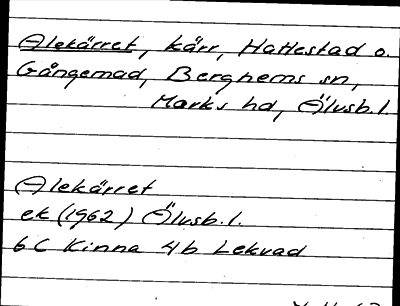 Alekärret, kärr, Hattestad o.
Gångemad, Berghems sn,
Marks hd, Älvsb. l.
Alekärret
ek (1962) Älvsb. l.
6C Kinna 4b Lekvad